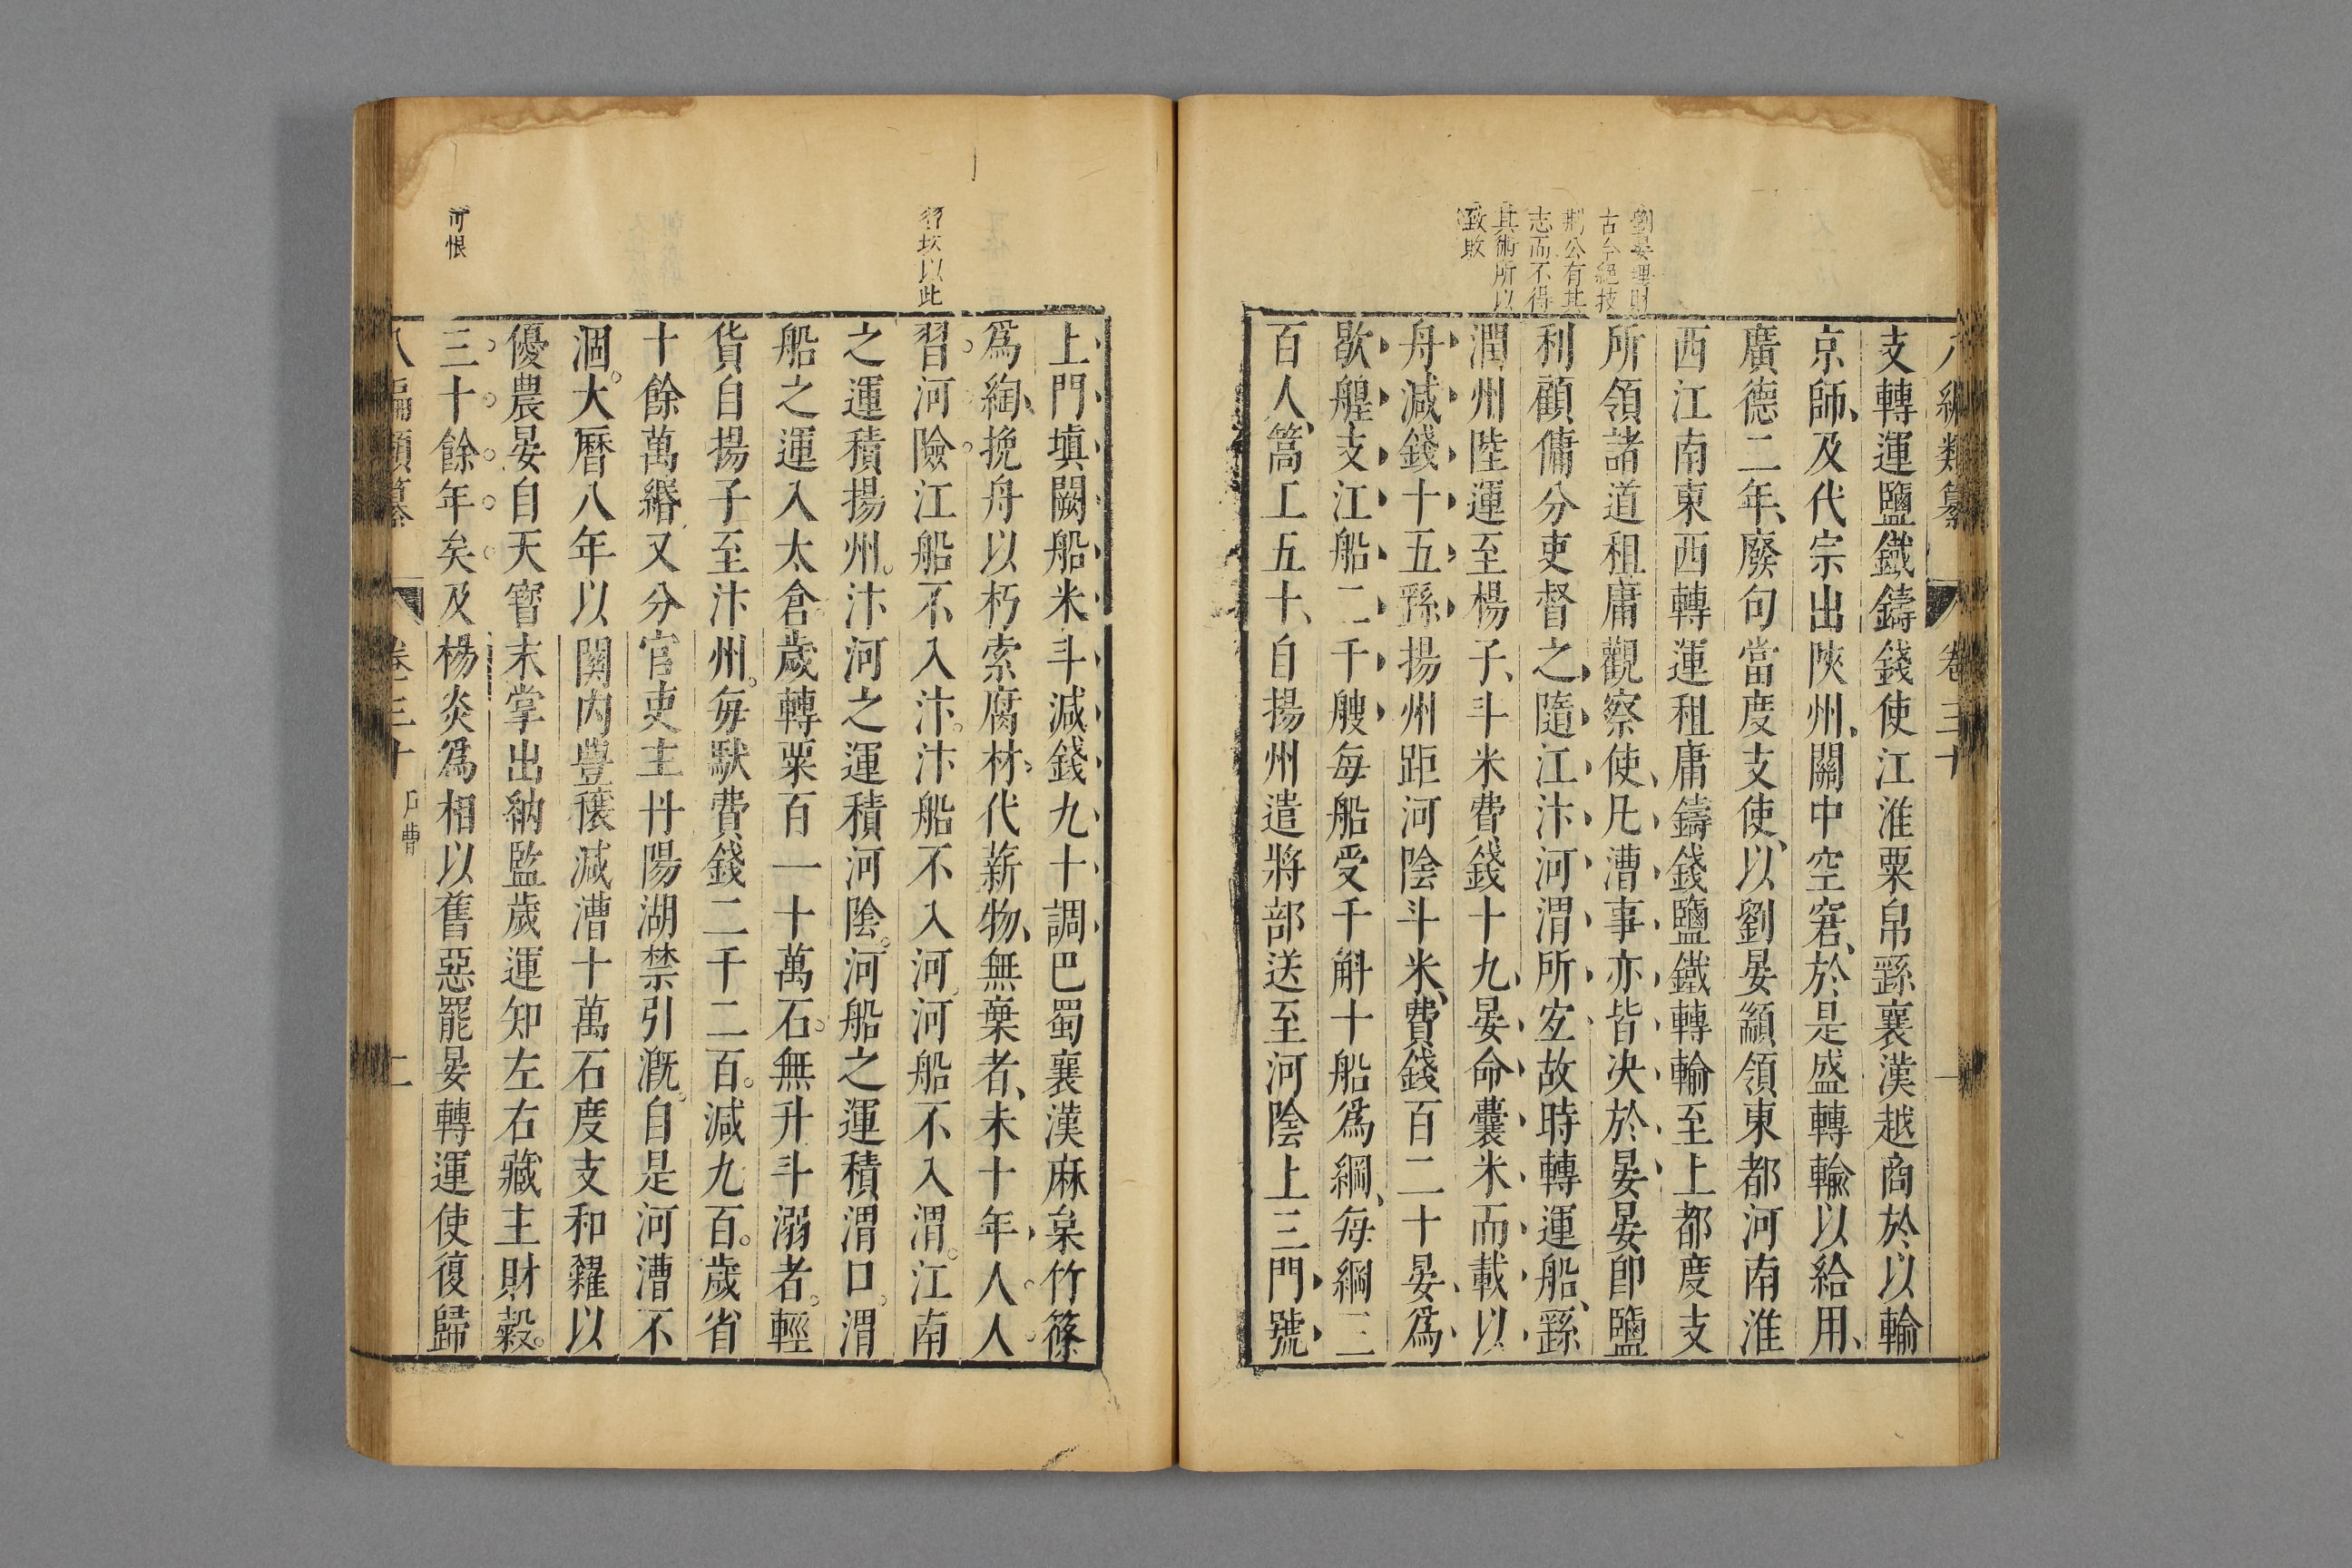 劉晏理財
古今絕技
荆公有其
志而不得
其術所以
致敗
八編類纂 卷三十
支轉運鹽鐵鑄錢使江淮粟帛繇襄漢越商於以輸
京師、及代宗出陜州、關中空窘、於是盛轉輸以給用、
廣德二年、廢句當度支使、以劉晏顓領東都河南淮
西江南東西轉運租庸鑄錢鹽鐵轉輸至上都度支
所領諸道租庸觀察使、凡漕事亦皆决於晏晏卽鹽
利顧傭分吏督之隨江汴河渭所宐故時轉運船、繇
潤州陸運至楊子、斗米費錢十九、晏命囊米而載以
舟減錢十五繇揚州距河陰斗米、費錢百二十晏爲
歇艎支江船二千艘每船受千斛十船爲綱、每綱三
百人、篙工五十、自揚州遣將部送至河陰上三門號
上門塡闕船米斗減錢九十調巴蜀襄漢麻枲竹篠
爲綯、挽舟以朽索腐材代薪物、無棄者、未十年人人
習河險江船不入汴。汴船不入河。河船不入渭。江南
之運積揚州。汴河之運積河陰。河船之運積渭口。渭
船之運入太倉。歲轉粟百一十萬石。無升斗溺者。輕
貨自揚子至汴州。每馱費錢二千二百。減九百。歲省
十餘萬緡、又分官吏主丹陽湖禁引漑。自是河漕不
涸。大曆八年以関内豐穰減漕十萬石度支和糴以
優農晏自天寶末掌出納監歲運知左右藏主財穀。
三十餘年矣及楊炎爲相以舊惡罷晏轉運使復歸
習坎以此
可恨
八編類纂 卷三十 戶曹